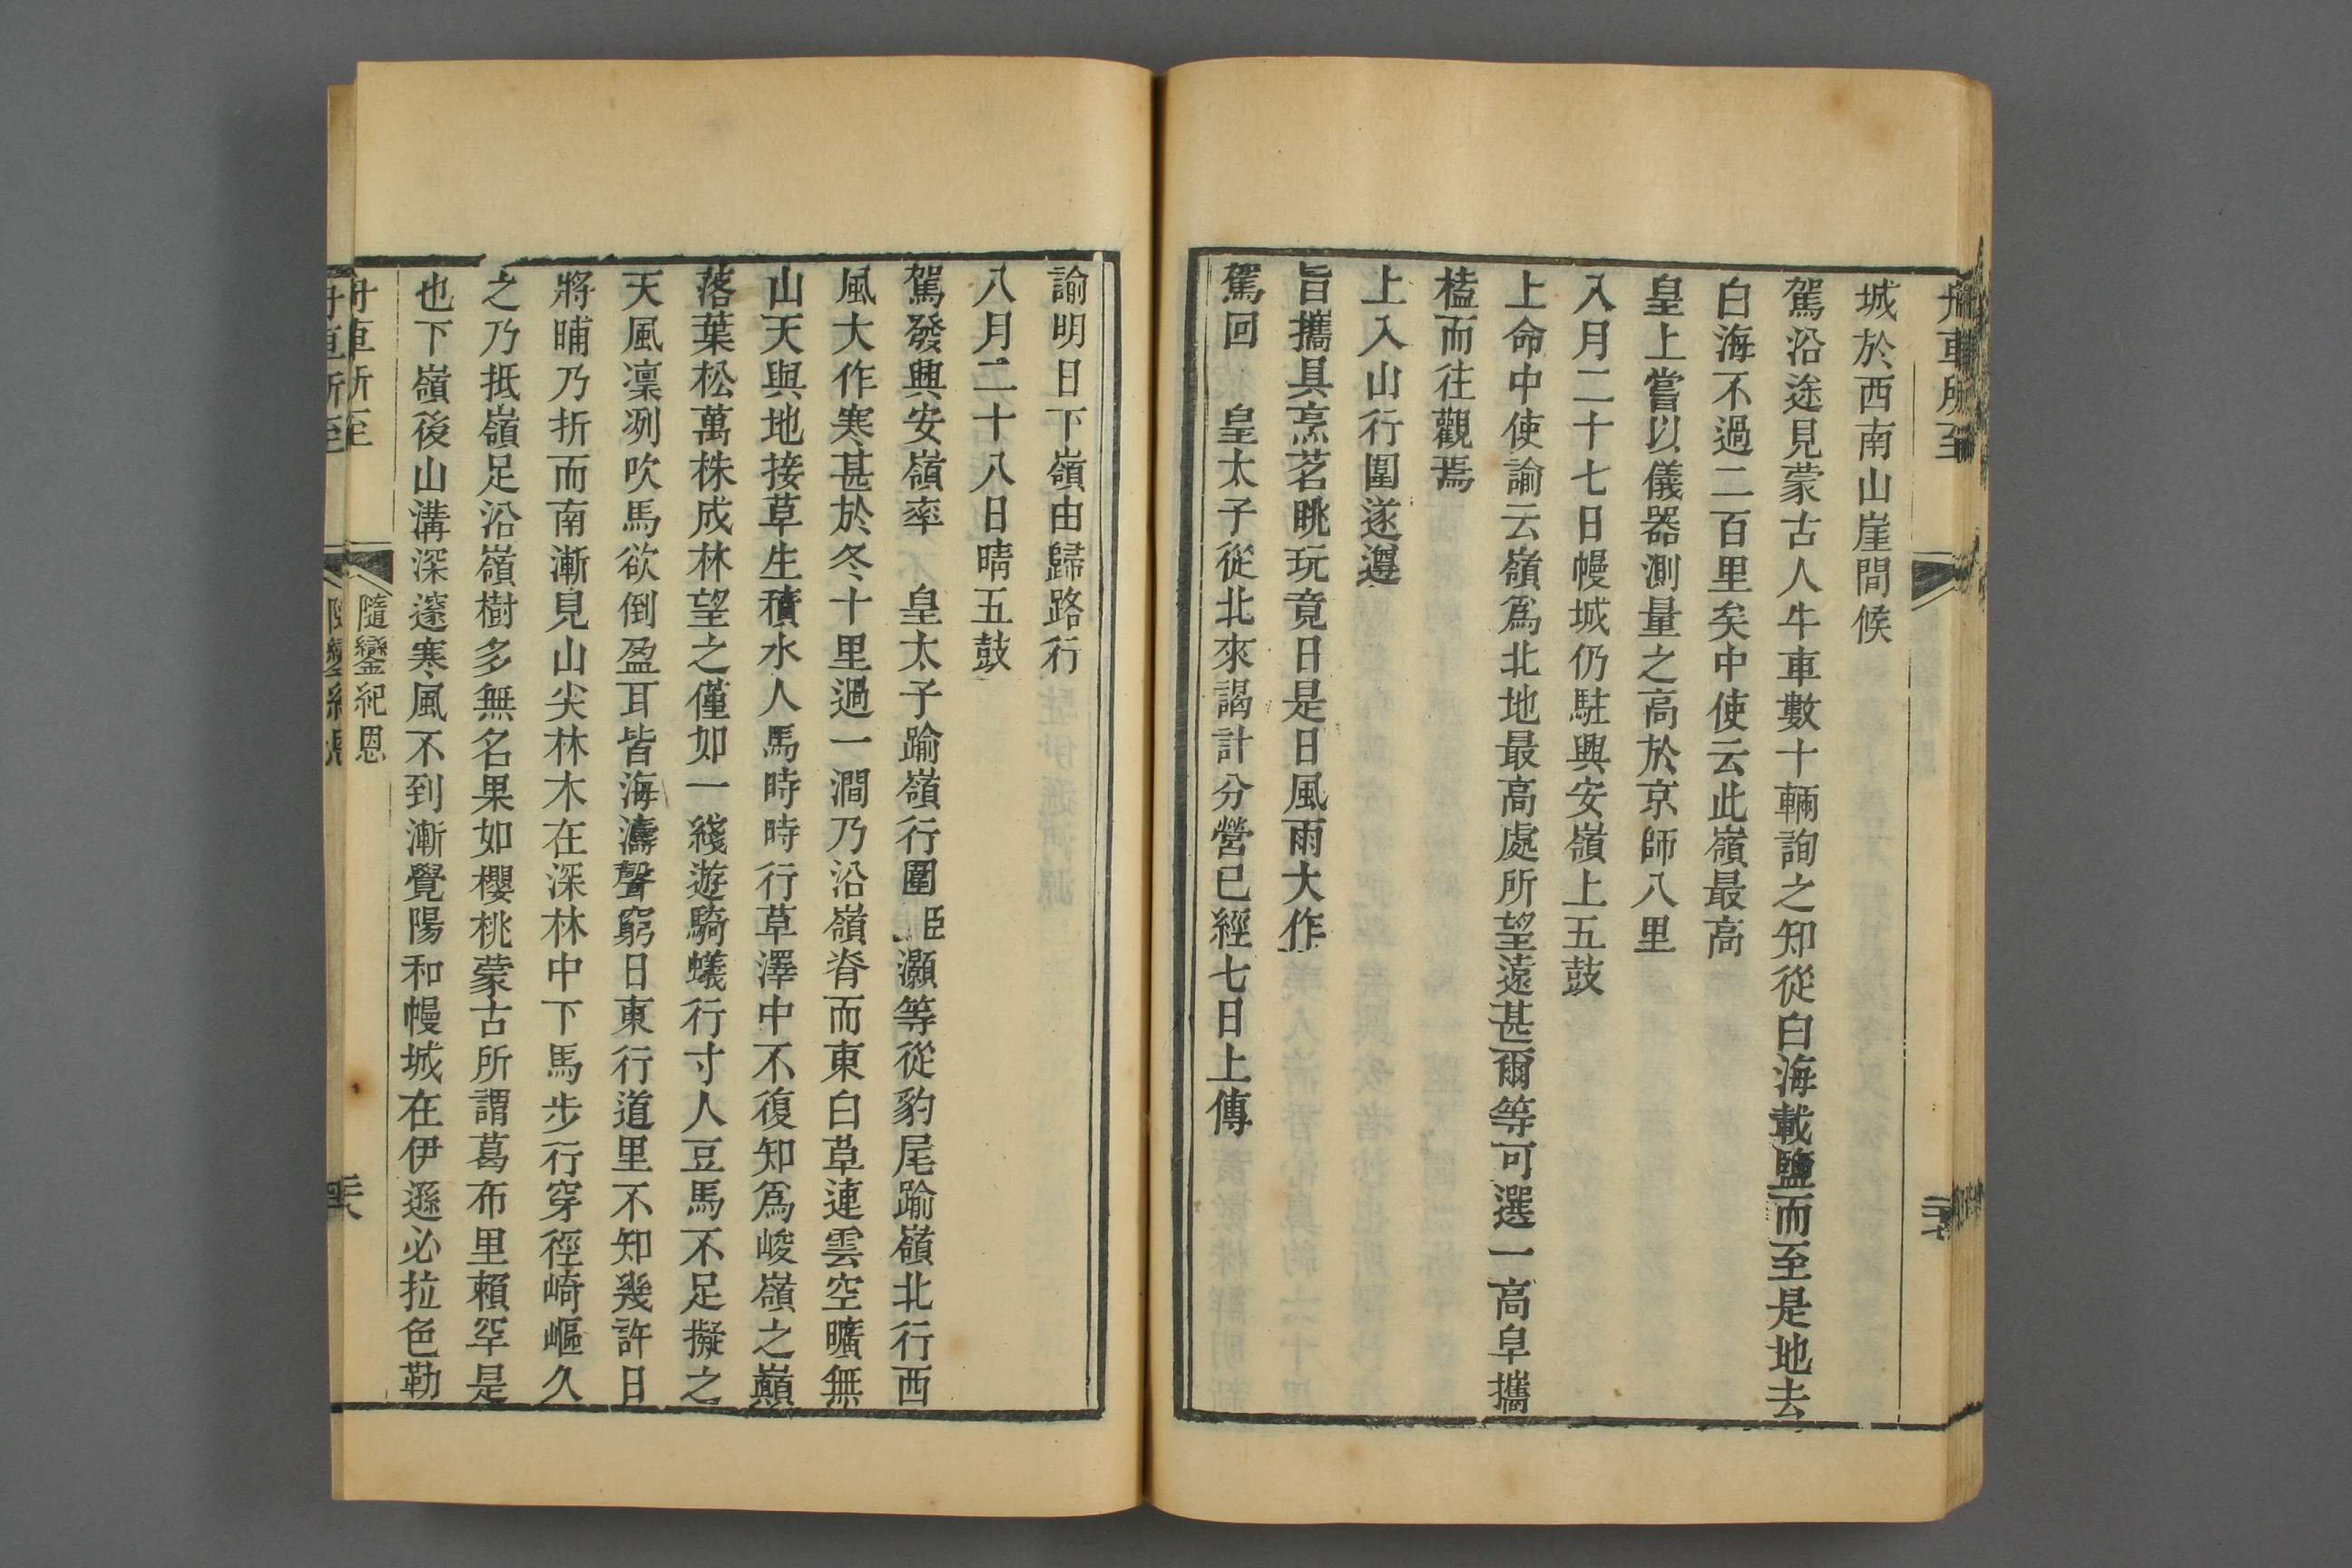 舟車所至
城於西南山崖間候
駕沿途見蒙古人牛車數十輛詢之知從白海載鹽而至是地去
白海不過二百里矣中使云此嶺最高
皇上嘗以儀器測量之高於京師八里
入月二十七日幔城仍駐興安嶺上五鼓
上命中使諭云嶺爲北地最高處所望遠甚爾等可選一高阜攜
榼而往觀焉
上入山行圍遂遵
旨攜具烹茗眺玩竟日是日風雨大作
駕回 皇太子從北來謁計分營已經七日上傳
諭明日下嶺由歸路行
八月二十八日晴五鼓
駕發興安嶺率 皇太子踰嶺行圍臣灝等從豹尾踰嶺北行西
風大作寒甚於冬十里過一澗乃沿嶺脊而東白草連雲空曠無
山天與地接草生積水人馬時時行草澤中不復知爲峻嶺之巔
落葉松萬株成林望之僅如一綫遊騎蟻行寸人豆馬不足擬之
天風凜冽吹馬欲倒盈耳皆海濤聲窮日東行道里不知幾許日
將晡乃折而南漸見山尖林木在深林中下馬步行穿徑崎嶇久
之乃抵嶺足沿嶺樹多無名果如櫻桃蒙古所謂葛布里賴罕是
也下嶺後山溝深邃寒風不到漸覺陽和幔城在伊遜必拉色勒
舟車所至
隨鑾紀恩